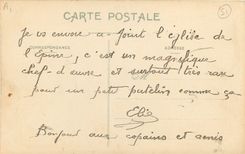 A.
51
CARTE POSTALE
CORRESPONDANCE
ADRESSE
Je vs envoie ci-joint l'église de
l'Epine, c'est un magnifique
chef-d'œuvre et surtout très rare
pour un petit patelin comme ça
Elie
Bonjour aux copains et amis